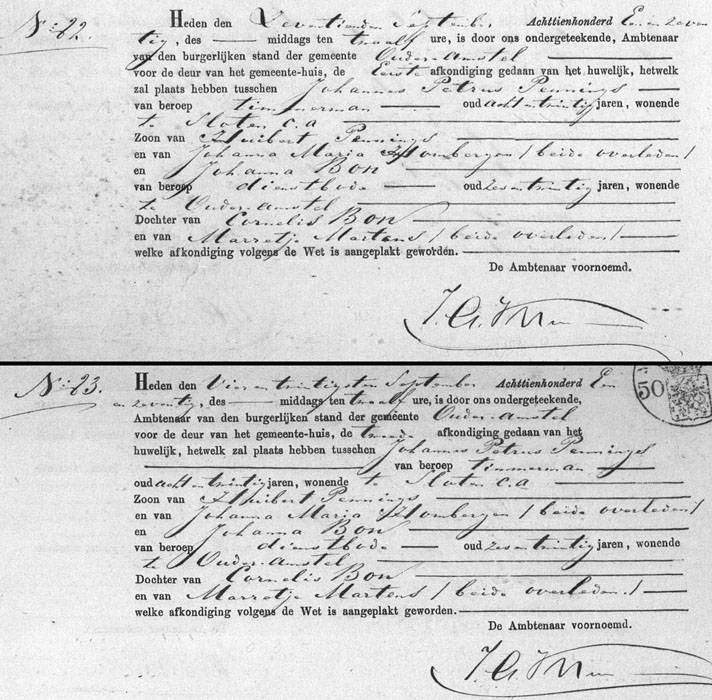 No: 22.
Heden den Zeventienden September Achttienhonderd Een en zeven
tig, des middags ten twaalf ure, is door ons ondergeteekende, Ambtenaar
van den burgerlijken stand der gemeente Ouder-Amstel
voor de deur van het gemeente-huis, de Eerste afkondiging gedaan van het huwelijk, hetwelk
zal plaats hebben tusschen Johannes Petrus Pennings
van beroep timmerman oud acht en twintig jaren, wonende
te Sloten c.a
Zoon van Huibert Pennings
en van Johanna Maria Hombergen / beide overleden /
en Johanna Bon
van beroep dienstbode oud zes en twintig jaren, wonende
te Ouder-Amstel
Dochter van Cornelis Bon
en van Marretje Martens / beide overleden. /
welke afkondiging volgens de Wet is aangeplakt geworden.
De Ambtenaar voornoemd.
No: 23.
50
Heden den Vier en twintigsten September Achttienhonderd Een
en zeventig, des middags ten twaalf ure, is door ons ondergeteekende,
Ambtenaar van den burgerlijken stand der gemeente Ouder-Amstel
voor de deur van het gemeente-huis, de tweede afkondiging gedaan van het
huwelijk, hetwelk zal plaats hebben tusschen Johannes Petrus Pennings
van beroep timmerman
oud acht en twintig jaren, wonende te Sloten c.a
Zoon van Huibert Pennings
en van Johanna Maria Hombergen / beide overleden /
en Johanna Bon
van beroep dienstbode oud zes en twintig jaren, wonende
te Ouder-Amstel
Dochter van Cornelis Bon
en van Marretje Martens / beide overleden. /
welke afkondiging volgens de Wet is aangeplakt geworden.
De Ambtenaar voornoemd.